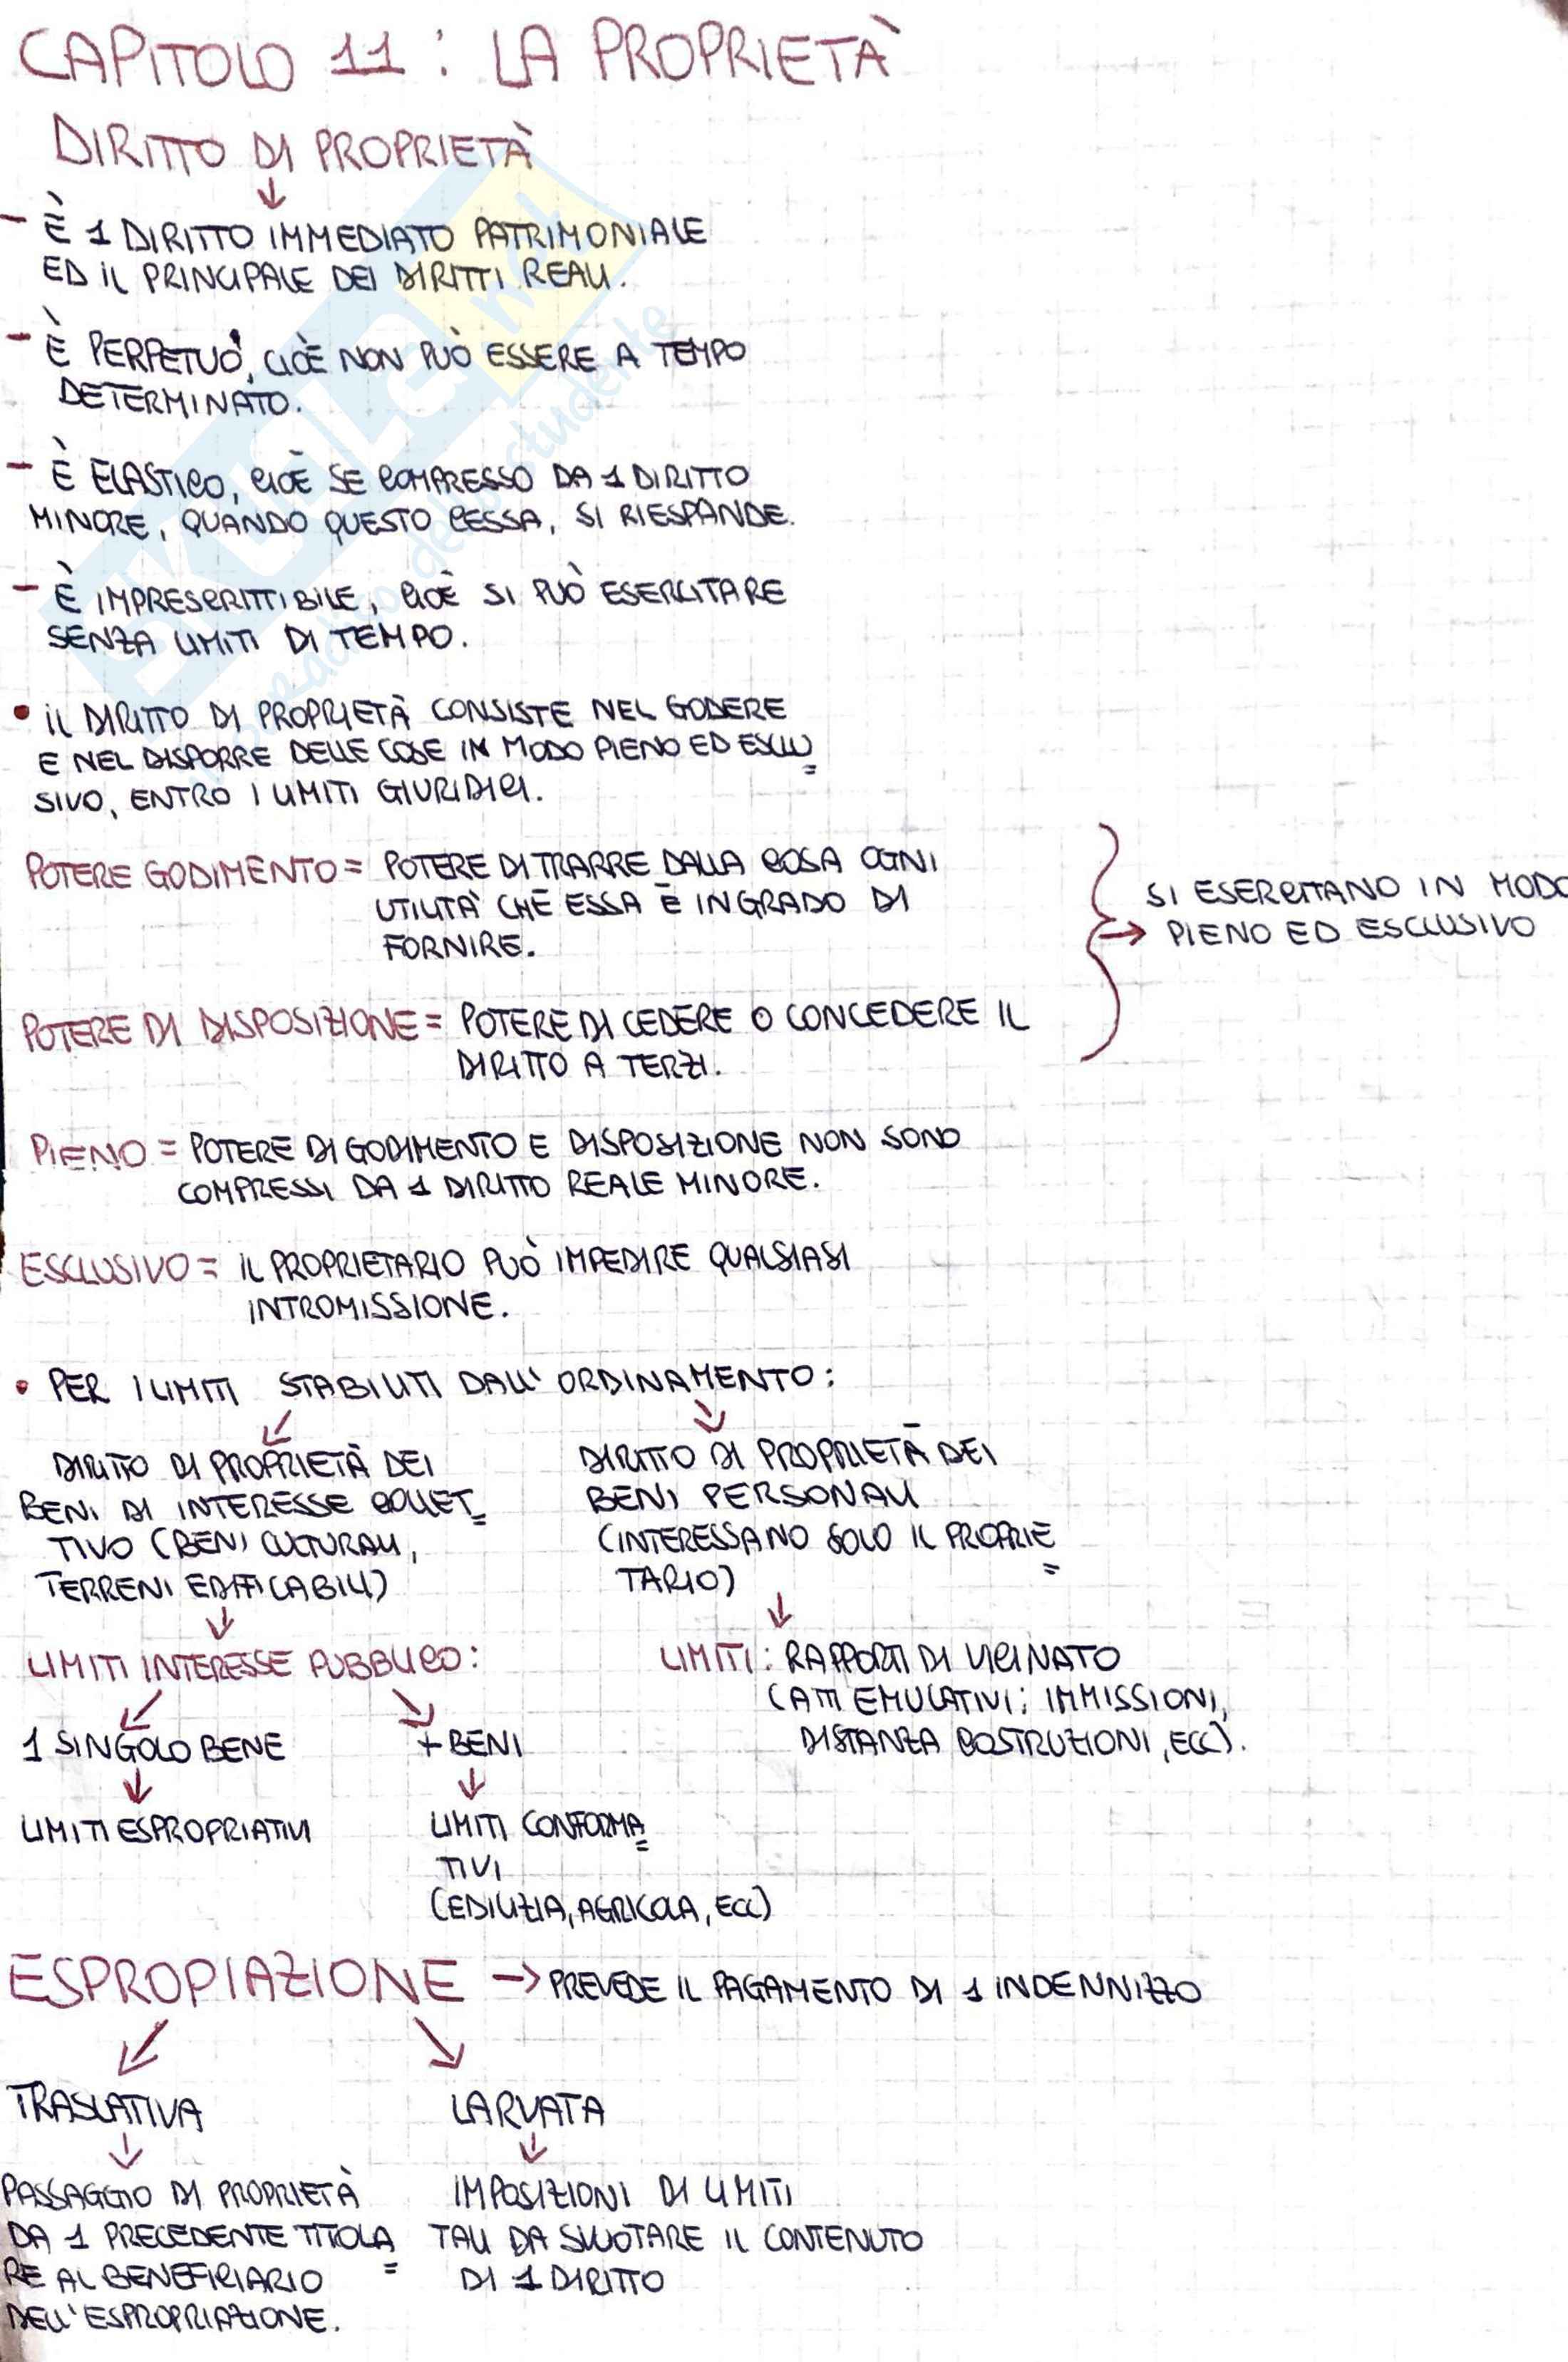 CAPITOLO 11 : LA PROPRIETÀ
DIRITTO DI PROPRIETÀ
↓
- È 1 DIRITTO IMMEDIATO PATRIMONIALE
ED IL PRINCIPALE DEI DIRITTI REALI.
- È PERPETUO, CIOÈ NON PUÒ ESSERE A TEMPO
DETERMINATO.
- È ELASTICO, CIOÈ SE COMPRESSO DA 1 DIRITTO
MINORE, QUANDO QUESTO CESSA, SI RIESPANDE.
- È IMPRESCRITTIBILE, CIOÈ SI PUÒ ESERCITARE
SENZA LIMITI DI TEMPO.
• IL DIRITTO DI PROPRIETÀ CONSISTE NEL GODERE
E NEL DISPORRE DELLE COSE IN MODO PIENO ED ESCLU=
SIVO, ENTRO I LIMITI GIURIDICI.
POTERE GODIMENTO = POTERE DI TRARRE DALLA COSA OGNI
UTILITÀ CHE ESSA È IN GRADO DI
FORNIRE.
POTERE DI DISPOSIZIONE = POTERE DI CEDERE O CONCEDERE IL
DIRITTO A TERZI.
→ SI ESERCITANO IN MODO
PIENO ED ESCLUSIVO
PIENO = POTERE DI GODIMENTO E DISPOSIZIONE NON SONO
COMPRESSI DA 1 DIRITTO REALE MINORE.
ESCLUSIVO = IL PROPRIETARIO PUÒ IMPEDIRE QUALSIASI
INTROMISSIONE.
• PER I LIMITI STABILITI DALL'ORDINAMENTO:
DIRITTO DI PROPRIETÀ DEI
BENI DI INTERESSE COLLET=
TIVO (BENI CULTURALI,
TERRENI EDIFICABILI)
↓
LIMITI INTERESSE PUBBLICO:
1 SINGOLO BENE
↓
LIMITI ESPROPRIATIVI
+ BENI
↓
LIMITI CONFORMA=
TIVI
(EDILIZIA, AGRICOLA, ECC)
DIRITTO DI PROPRIETÀ DEI
BENI PERSONALI
(INTERESSANO SOLO IL PROPRIE=
TARIO)
↓
LIMITI: RAPPORTI DI VICINATO
(ATTI EMULATIVI; IMMISSIONI,
DISTANZA COSTRUZIONI, ECC).
ESPROPIAZIONE → PREVEDE IL PAGAMENTO DI 1 INDENNIZZO
TRASLATIVA
↓
PASSAGGIO DI PROPRIETÀ
DA 1 PRECEDENTE TITOLA=
RE AL BENEFICIARIO
DELL'ESPROPRIAZIONE.
LARVATA
↓
IMPOSIZIONI DI LIMITI
TALI DA SVUOTARE IL CONTENUTO
DI 1 DIRITTO